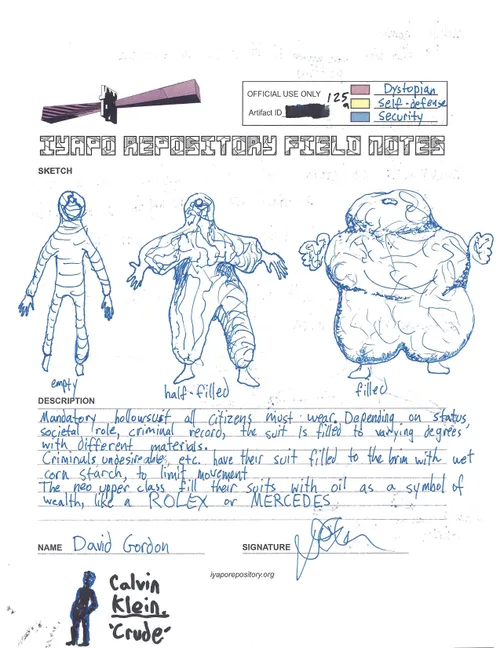 OFFICIAL USE ONLY
Artifact ID
125
9
Dystopian
Self-defense
Security
IYAPO REPOSITORY FIELD NOTES
SKETCH
empty
half-filled
filled
DESCRIPTION
Mandatory hollowsuit all citizens must wear. Depending on status
societal role, criminal record, the suit is filled to varying degrees
with different materials.
Criminals, undesireables, etc. have their suit filled to the brim with wet
corn starch, to limit movement
The neo upper class fill their suits with oil as a symbol of
wealth, like a ROLEX or MERCEDES.
NAME David Gordon
SIGNATURE
iyaporepository.org
Calvin
Klein.
"Crude"